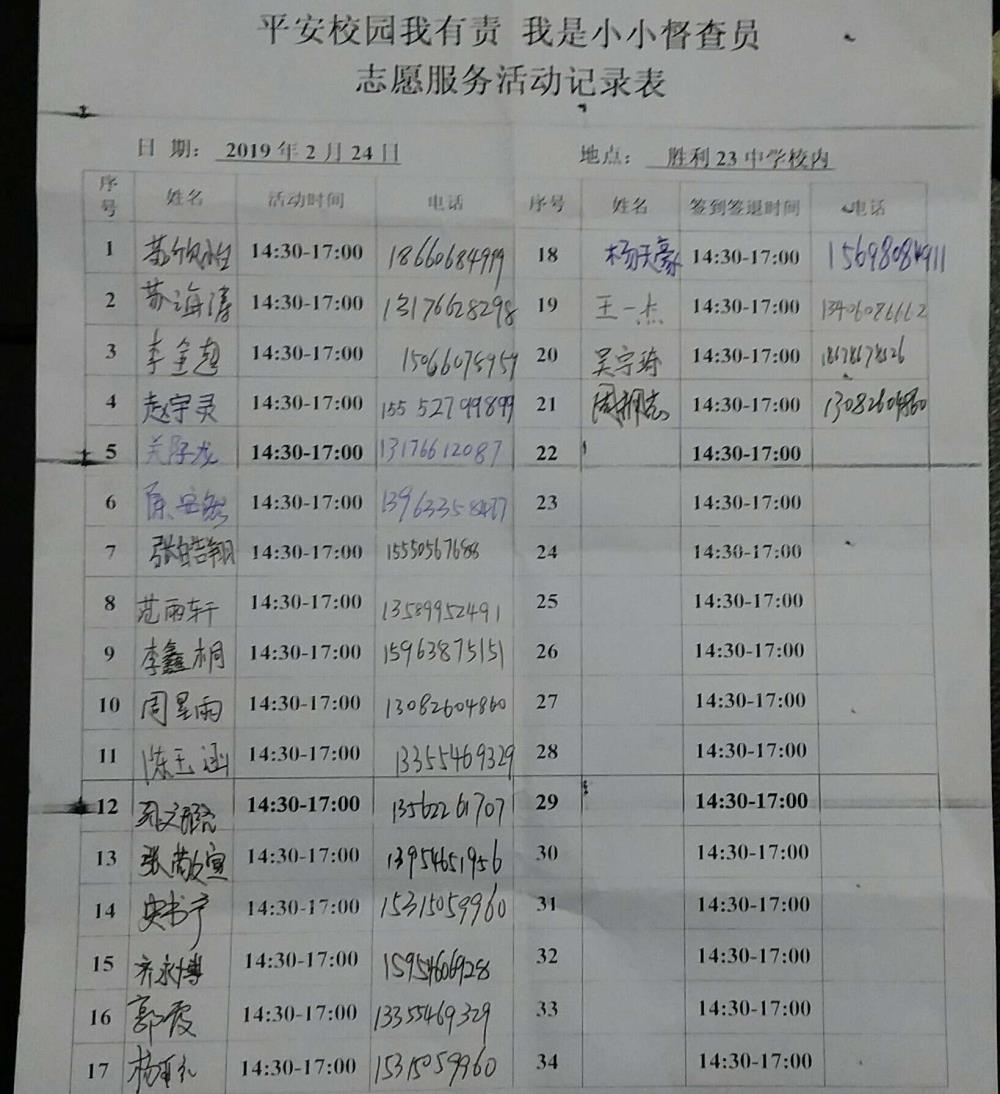 平安校园我有责 我是小小督查员
志愿服务活动记录表
日 期： 2019 年 2 月 24 日 地点： 胜利 23 中学校内
序号 姓名 活动时间 电话 序号 姓名 签到签退时间 电话
1 14:30-17:00 18 杨天豪 14:30-17:00 15698084911
2 苏海涛 14:30-17:00 13176628298 19 王一杰 14:30-17:00 13406086662
3 李金超 14:30-17:00 15066075959 20 吴宇琦 14:30-17:00
4 赵宇灵 14:30-17:00 15552799899 21 14:30-17:00 13082604860
5 14:30-17:00 13176612087 22 14:30-17:00
6 14:30-17:00 23 14:30-17:00
7 张皓翔 14:30-17:00 15550567688 24 14:30-17:00
8 范雨轩 14:30-17:00 13589952491 25 14:30-17:00
9 李鑫桐 14:30-17:00 15963875151 26 14:30-17:00
10 周星雨 14:30-17:00 13082604860 27 14:30-17:00
11 陈玉涵 14:30-17:00 13355469329 28 14:30-17:00
12 14:30-17:00 13562261707 29 14:30-17:00
13 张敬宣 14:30-17:00 13954651956 30 14:30-17:00
14 史书宁 14:30-17:00 15315059960 31 14:30-17:00
15 齐永博 14:30-17:00 15954606928 32 14:30-17:00
16 郭霞 14:30-17:00 13355469329 33 14:30-17:00
17 14:30-17:00 15315059960 34 14:30-17:00